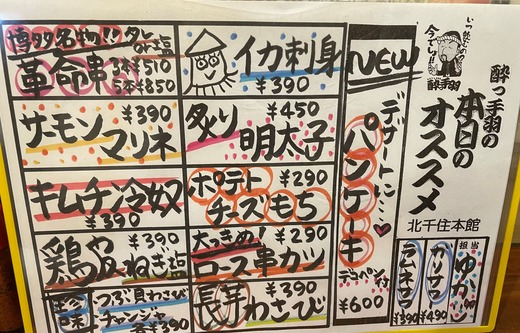 酔っ手羽の
本日の
オススメ
北千住本館
酔手羽
担当
カリカリー
¥490
¥390
NEW
デザートに…♥
パンケーキ
¥600
イカ刺身
¥390
炙り明太子
¥450
ポテトチーズもち
¥290
大っきめ!
ロース串カツ
¥290
長芋わさび
¥390
博多名物!! タレor塩
革命串 3本¥510
5本¥850
サーモンマリネ
¥390
キムチ冷奴
¥390
¥390
ねぎ塩
珍味
つぶ貝わさび
チャンジャ
各¥390